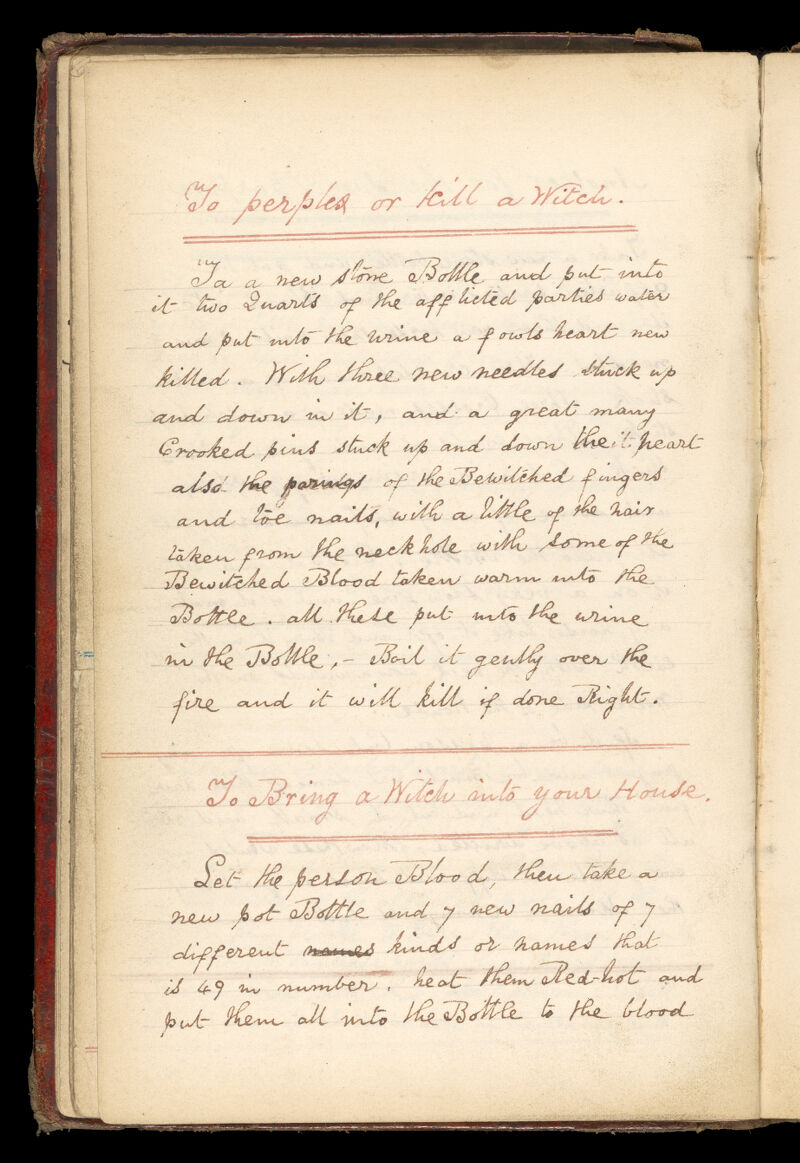 To perplex or kill a Witch.
Ta a new stone Bottle and put into
it two Quarts of the afflicted parties water
and put into the urine a fowls heart new
killed. With three new needles stuck up
and down in it, and a great many
Crooked pins stuck up and down the it heart
also the parings of the Bewitched fingers
and toe nails, with a little of the hair
taken from the neck hole with some of the
Bewitched Blood taken warm into the
Bottle. all these put into the urine
in the Bottle, - Boil it gently over the
fire and it will kill if done Right.
To Bring a Witch into your House.
Let the person Blood, then take a
new pot Bottle and 7 new nails of 7
different names kinds or names that
is 49 in number. heat them Red-hot and
put them all into the Bottle to the blood